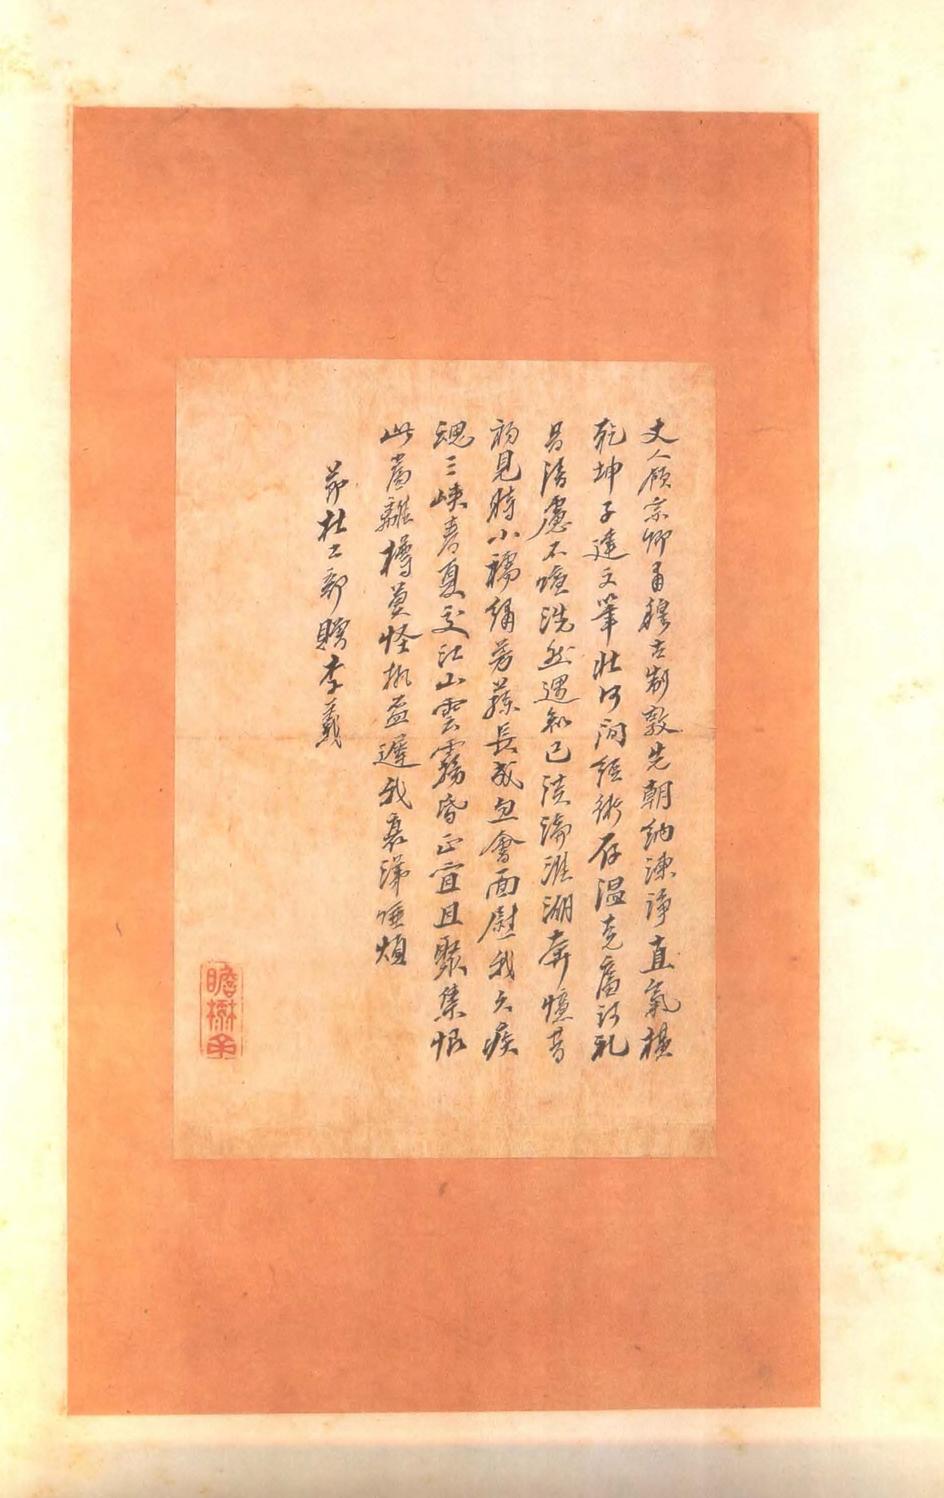 丈人領宗卿肅穆古制敦先朝納諫諍直氣橫
乾坤子建文筆壯河間經術存温克富詩礼
骨清慮不喧洗然遇知己談論淮湖奔憶昔
初見時小襦繡芳蓀長成忽會面慰我久疾
魂三峽春夏交江山雲霧昏正宜且聚集恨
此當離樽莫怪執盃遲我衰涕唾煩
節杜工部贈李義